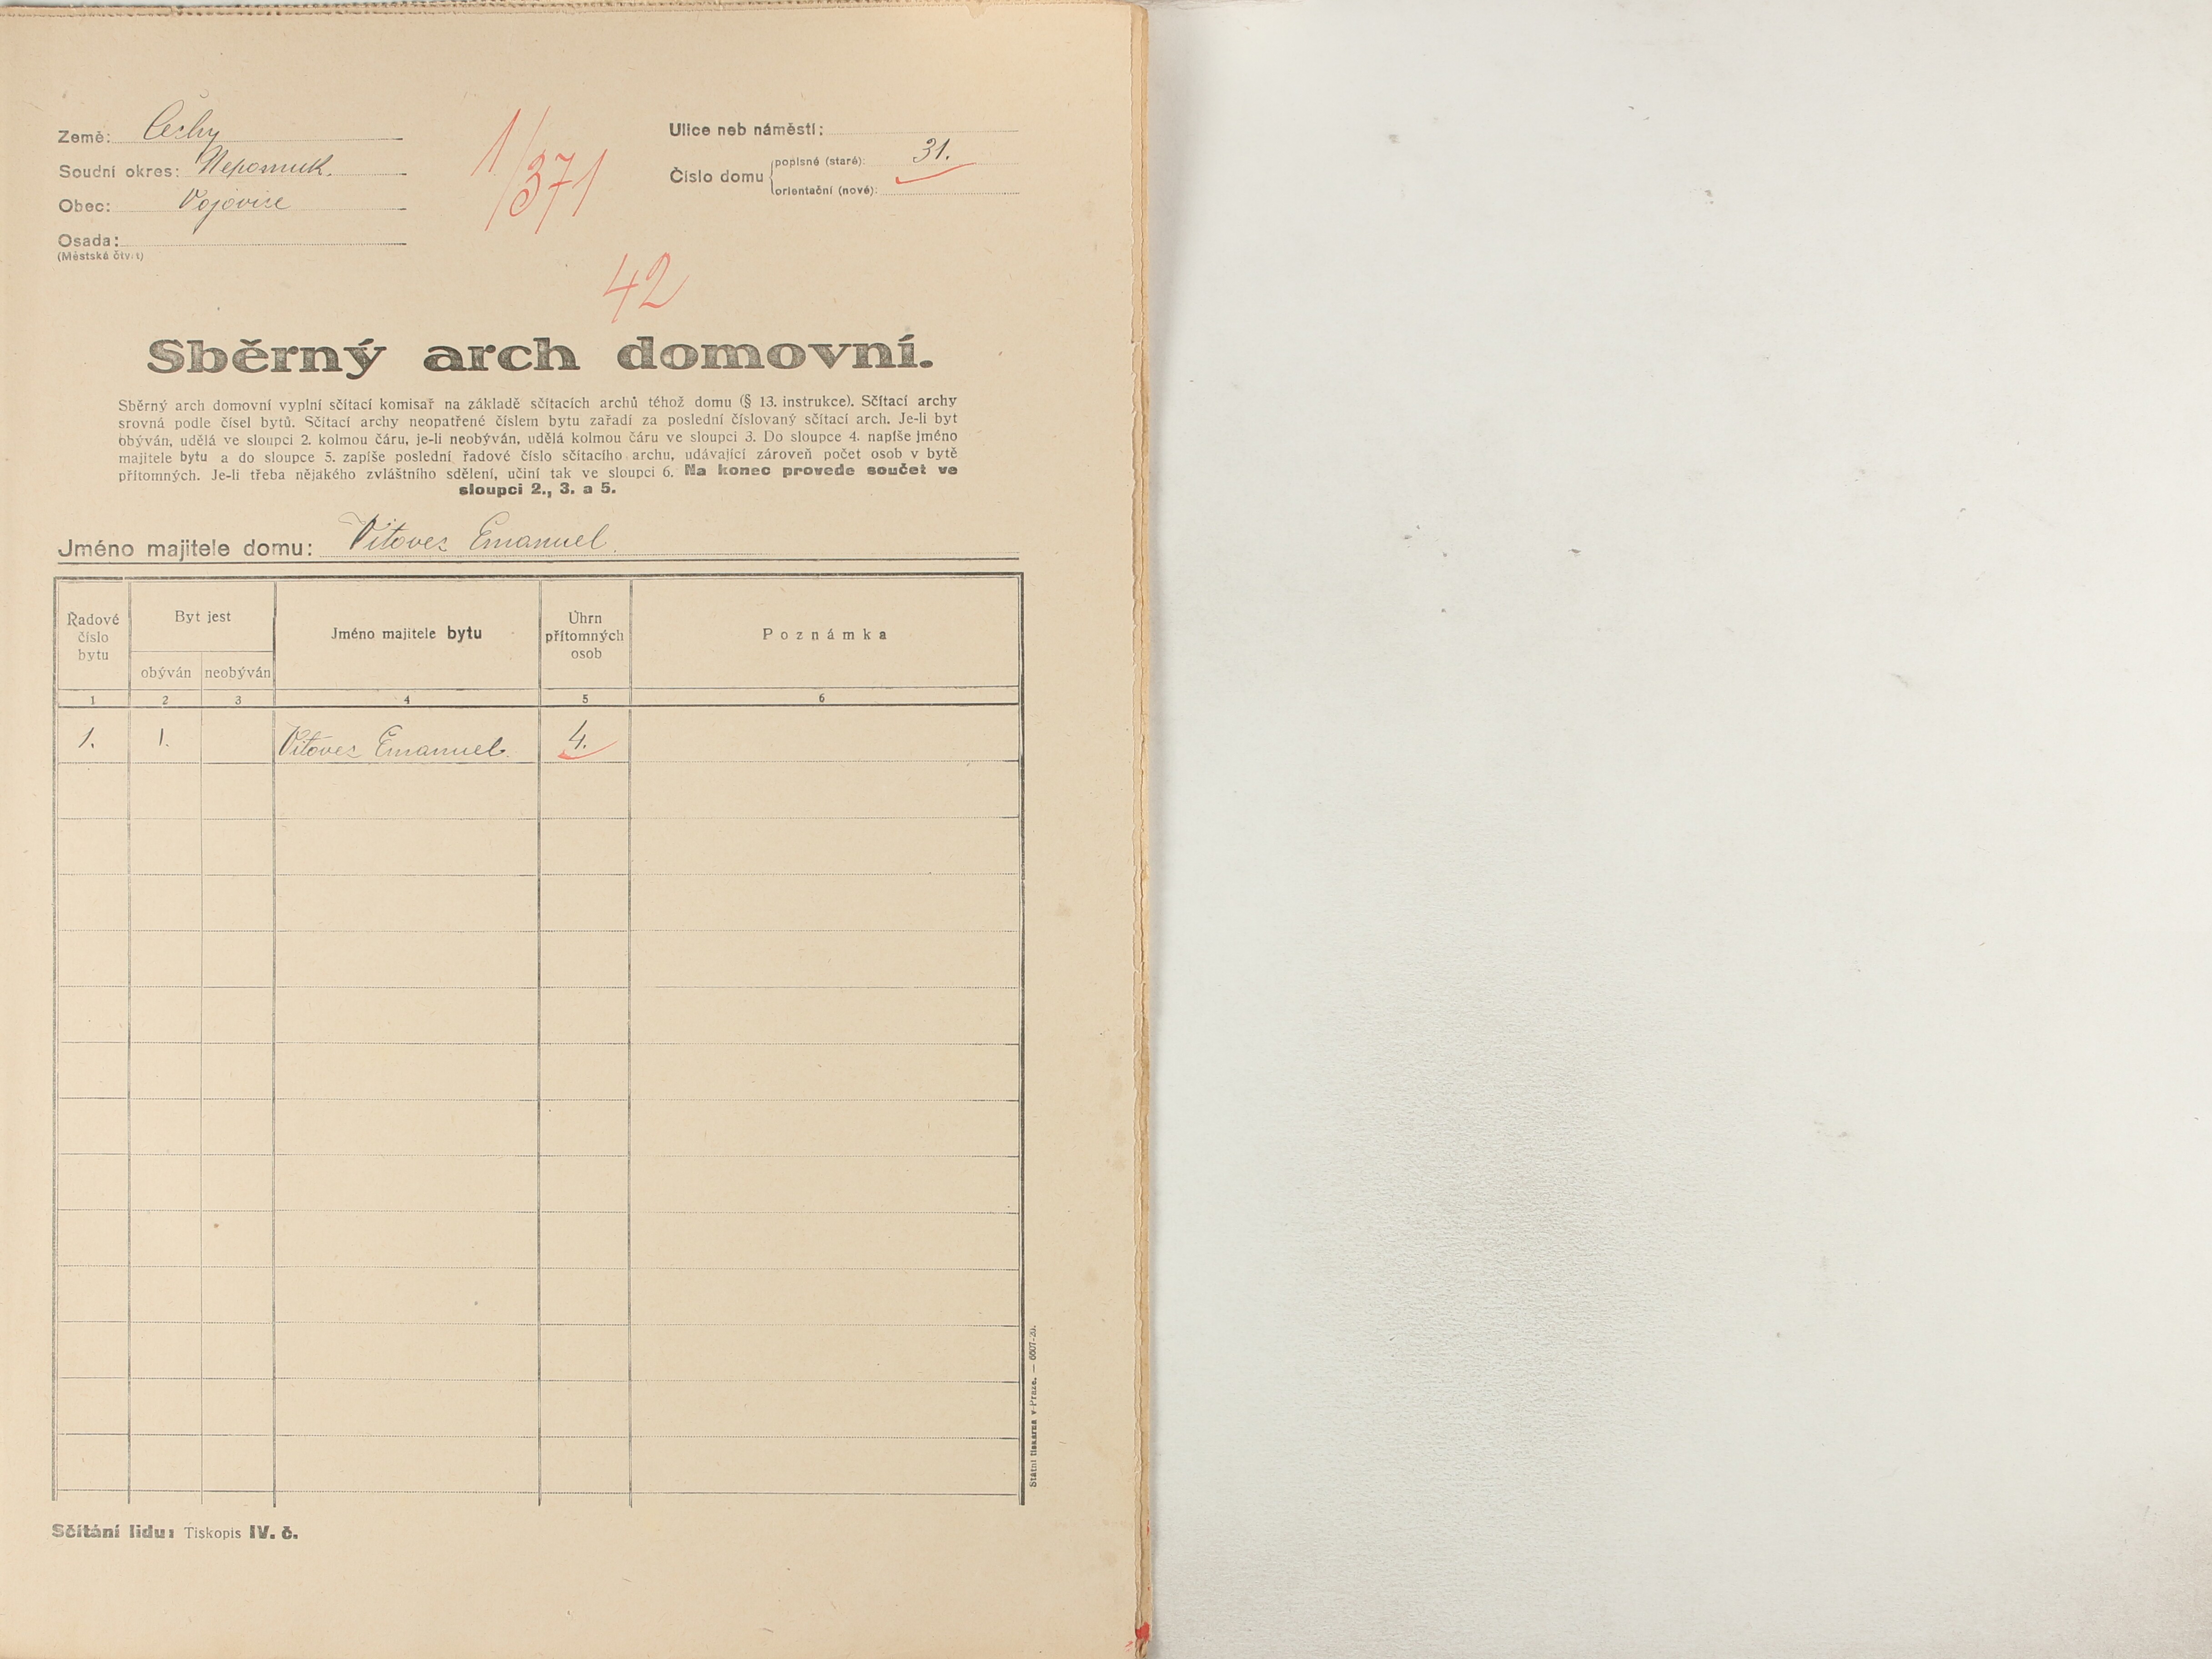 Země: Čechy
Soudní okres: Nepomuk.
Obec: Vojovice
Osada:
(Městská čtvrt)
1/371
42
Ulice neb náměstí:
Číslo domu
popisné (staré): 31.
orientační (nové):
Sběrný arch domovní.
Sběrný arch domovní vyplní sčítací komisař na základě sčítacích archů téhož domu (§ 13. instrukce). Sčítací archy
srovná podle čísel bytů. Sčítací archy neopatřené číslem bytu zařadí za poslední číslovaný sčítací arch. Je-li byt
obýván, udělá ve sloupci 2. kolmou čáru, je-li neobýván, udělá kolmou čáru ve sloupci 3. Do sloupce 4. napíše jméno
majitele bytu a do sloupce 5. zapíše poslední řadové číslo sčítacího archu, udávající zároveň počet osob v bytě
přítomných. Je-li třeba nějakého zvláštního sdělení, učiní tak ve sloupci 6. Na konec provede součet ve
sloupci 2., 3. a 5.
Jméno majitele domu: Vítovec Emanuel.
Řadové číslo bytu
Byt jest
obýván neobýván
Jméno majitele bytu
Úhrn přítomných osob
Poznámka
1 2 3 4 5 6
1. 1. Vítovec Emanuel. 4.
Státní tiskárna v Praze. — 6607-20.
Sčítání lidu: Tiskopis IV. č.